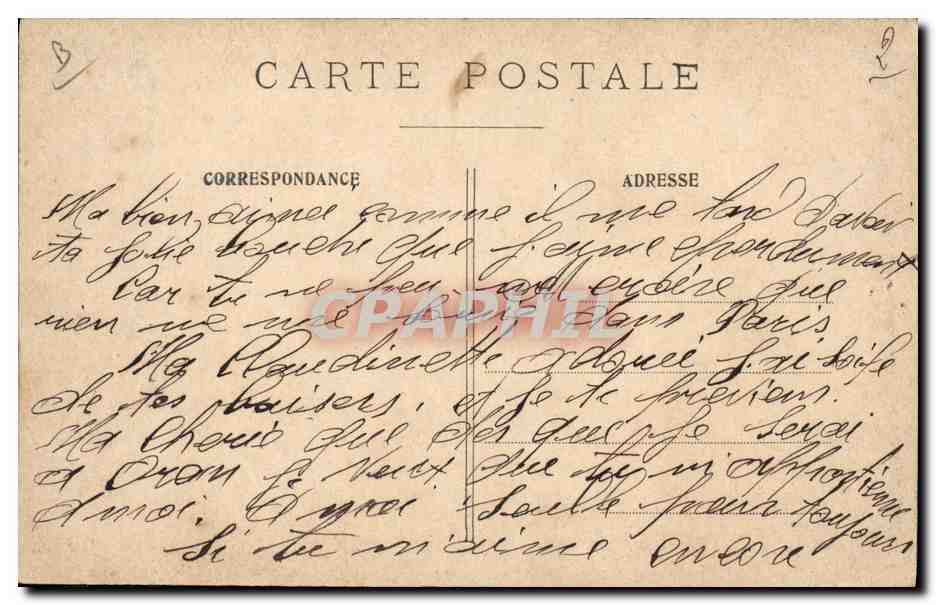 B
2
CARTE POSTALE
CORRESPONDANCE
ADRESSE
Ma bien aimée comme il me tard d'avoir
ta jolie bouche que j'aime
Car tu ne peu pas croire que
rien ne me dans Paris
Ma Claudinette adoué j'ai soife
de tes baisers, et je te previens.
Ma Cherie que des que je serai
a Oran je veux que tu m'appartienne
a moi, a moi seule pour toujours
Si tu m'aime encore
CPAPHIL